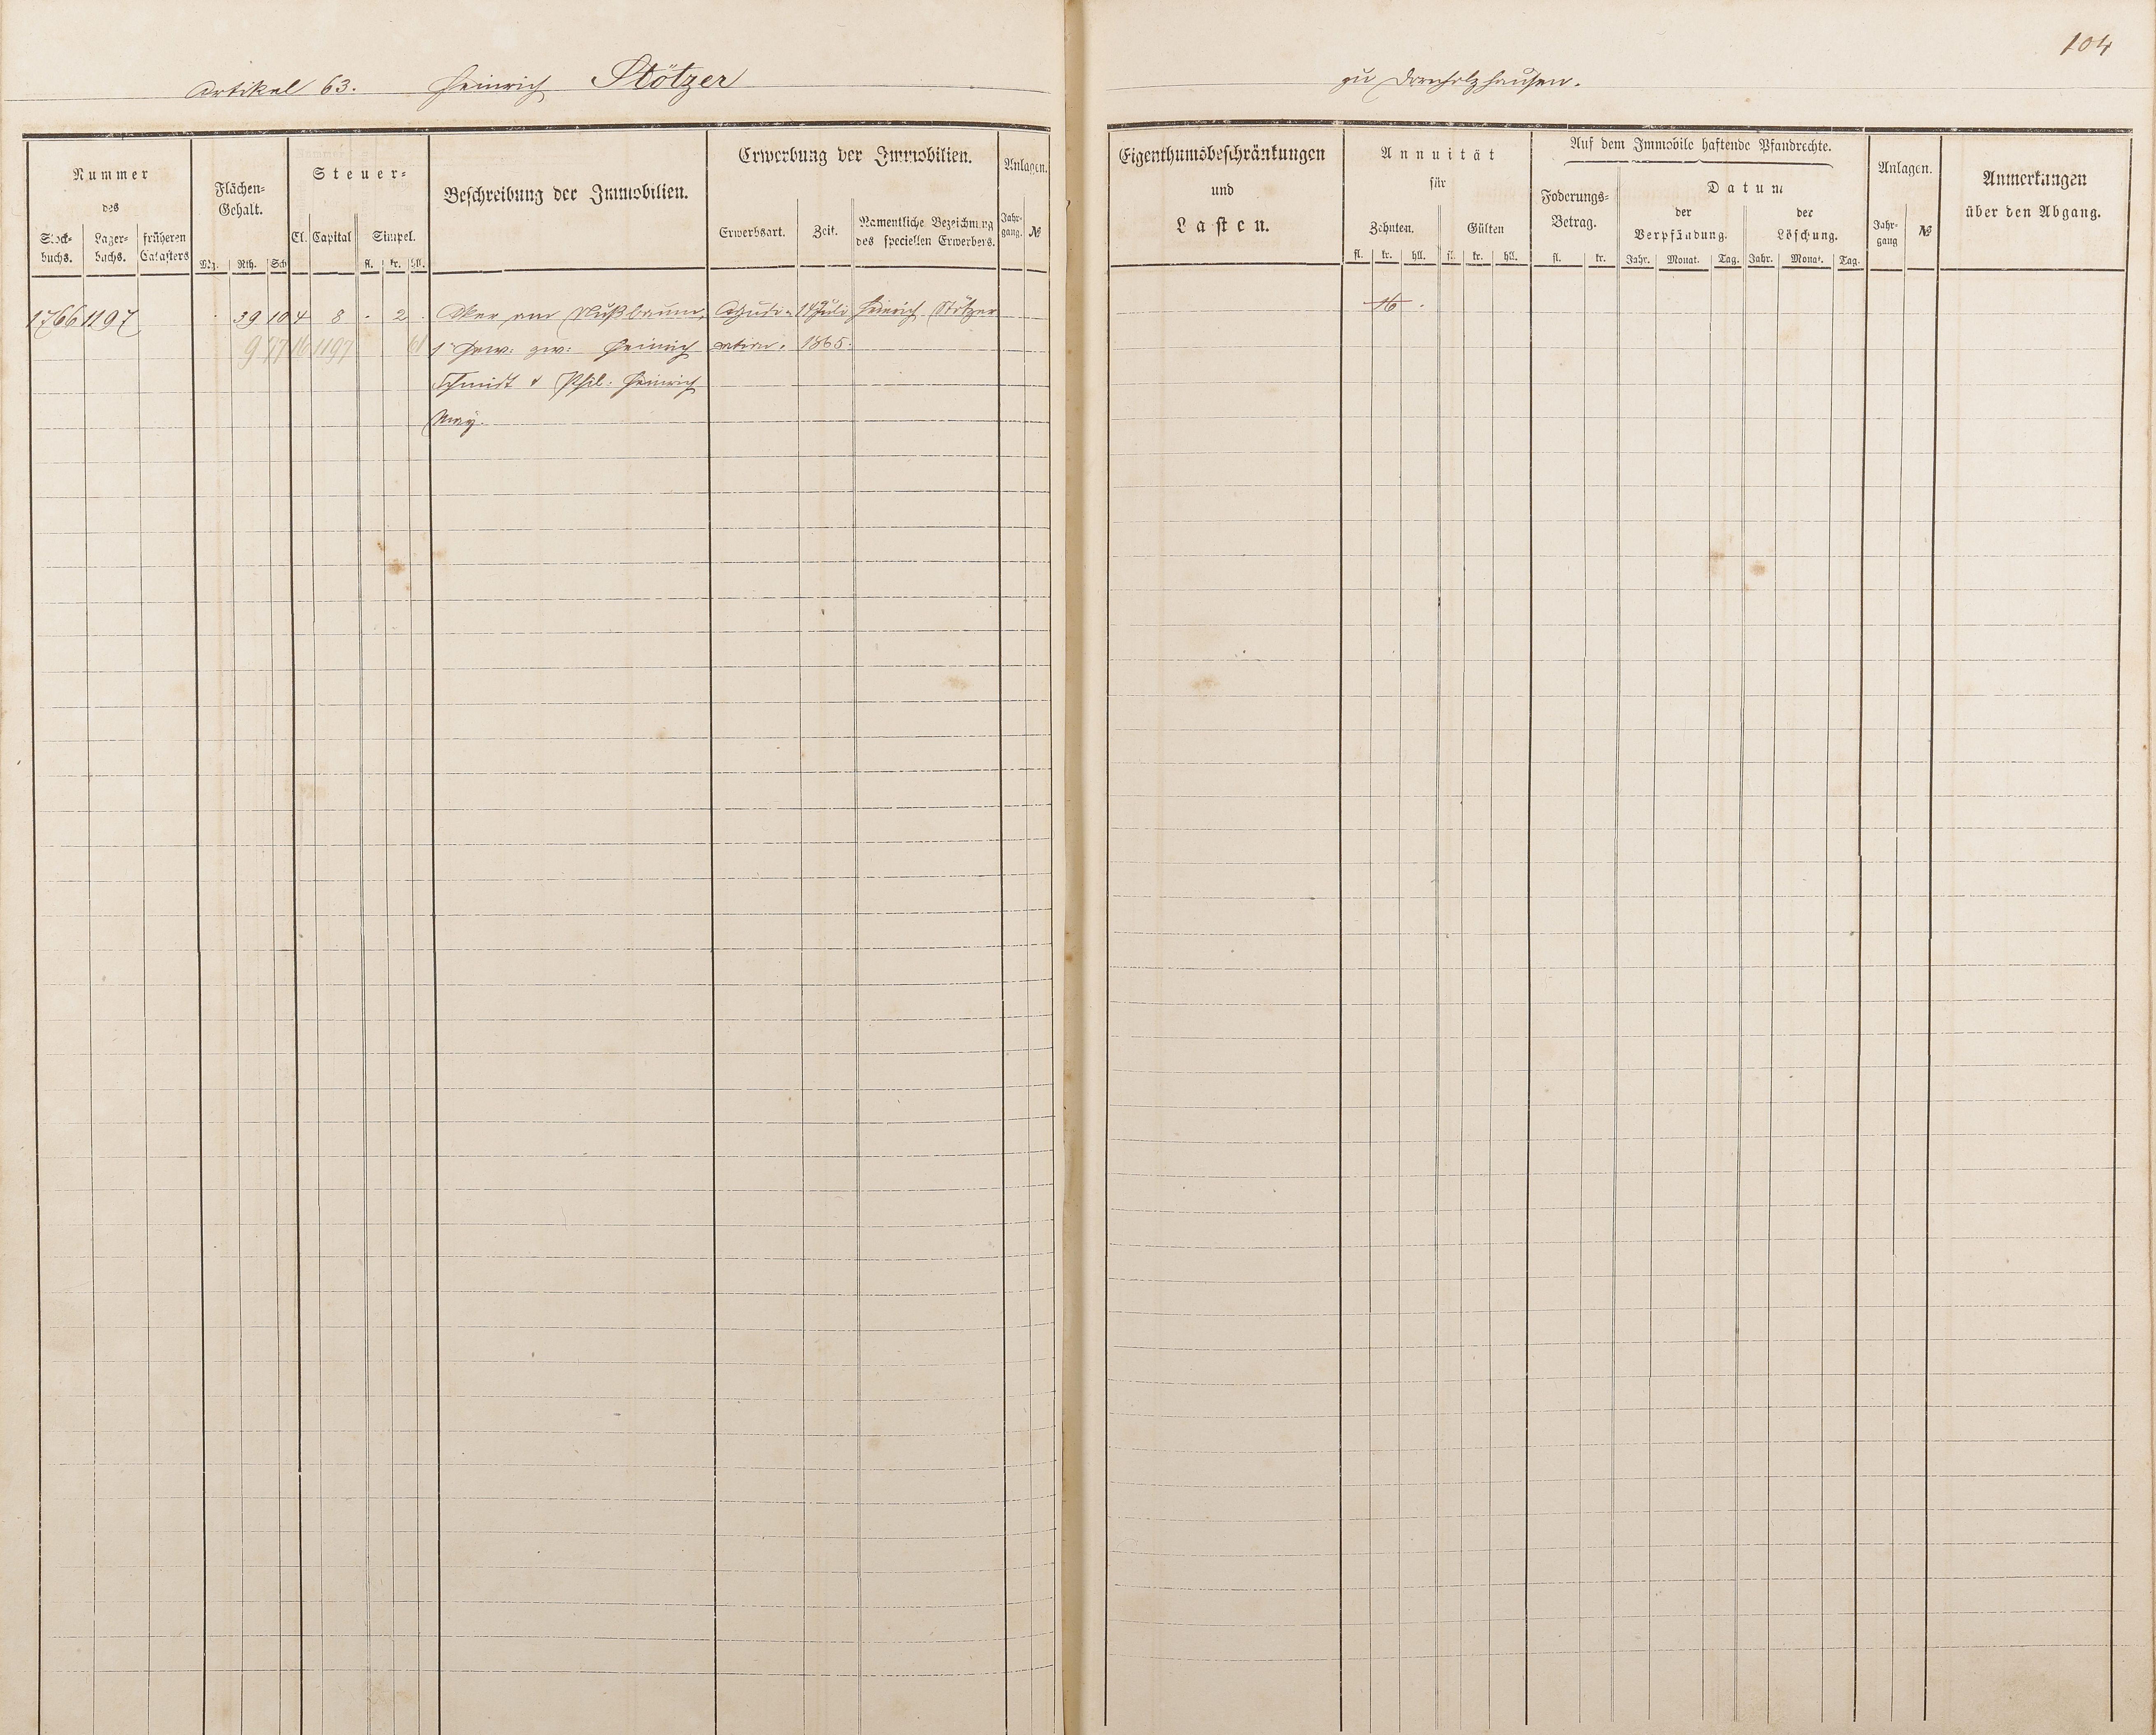 104
Artikel 63. Heinrich Stötzer
zu Dornholzhausen.
Nummer
des
Stock-
buchs.
Lager-
buchs.
früheren
Catasters
Flächen-
Gehalt.
Mg. Rth. Sch
Steuer-
Cl. Capital Simpel.
fl. kr. hll.
Beschreibung der Immobilien.
Erwerbung der Immobilien.
Erwerbsart. Zeit. Namentliche Bezeichnung
des speciellen Erwerbers.
Anlagen.
Jahr-
gang. №
Eigenthumsbeschränkungen
und
Lasten.
Annuität
für
Zehnten. Gülten
fl. kr. hll. fl. kr. hll.
Auf dem Immobile haftende Pfandrechte.
Foderungs-
Betrag.
fl. kr.
Datum
der
Verpfändung.
der
Löschung.
Jahr. Monat. Tag. Jahr. Monat. Tag.
Anlagen.
Jahr-
gang №
Anmerkungen
über den Abgang.
1766 1197 . 39 10 4 8 . 2 . Aker am Nußbaum, Adjudi- 14 Juli Heinrich Stötzer 16 .
9 77 16 1197 61 1 Gew: zw: Heinrich cation. 1865.
Schmidt & Phil: Heinrich
May.